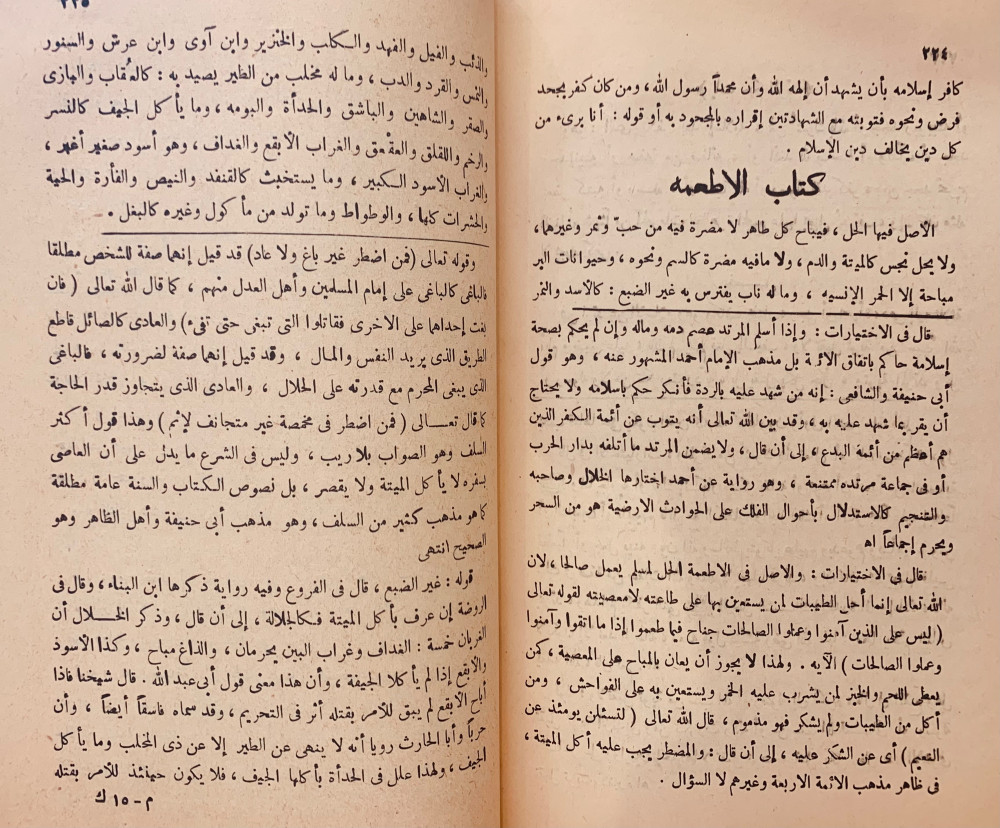 ٢٢٤
كافر إسلامه بأن يشهد أن إله الله وأن محمداً رسول الله، ومن كان كفر بجحد
فرض ونحوه فتوبته مع الشهادتين إقراره بالمجحود به أو قوله : أنا برىء من
كل دين يخالف دين الإسلام .
كتاب الاطعمه
الأصل فيها الحل، فيباح كل طاهر لا مضرة فيه من حبّ وثمر وغيرهما،
ولا يحل نجس كالميتة والدم، ولا مافيه مضرة كالسم ونحوه، وحيوانات البر
مباحة إلا الحمر الإنسيه ، وماله ناب يفترس به غير الضبع : كالأسد والنمر
قال فى الاختيارات : وإذا أسلم المرتد عصم دمه وماله وإن لم يحكم بصحة
إسلامة حاكم باتفاق الأئمة بل مذهب الإمام أحمد المشهور عنه ، وهو قول
أبى حنيفة والشافعى : إنه من شهد عليه بالردة فأنكر حكم باسلامه ولا يحتاج
أن يقر بما شهد عليه به ، وقد بين الله تعالى أنه يتوب عن أئمة الكفر الذين
هم أعظم من أئمة البدع ، إلى أن قال ، ولا يضمن المرتد ما أتلفه بدار الحرب
أو فى جماعة مرتده ممتنعة ، وهو رواية عن أحمد اختارها الخلال وصاحبه
والتنجيم كالاستدلال بأحوال الفلك على الحوادث الارضية هو من السحر
ويحرم إجماعاً اه
قال فى الاختيارات : والاصل فى الاطعمة الحل لمسلم يعمل صالحا ، لان
الله تعالى إنما أحل الطيبات لمن يستعين بها على طاعته لا معصيته لقوله تعالى
( ليس على الذين آمنوا وعملوا الصالحات جناح فيما طعموا إذا ما اتقوا وآمنوا
وعملوا الصالحات ) الآيه . ولهذا لا يجوز أن يعان بالمباح على المعصية ، كمن
يعطى اللحم والخبز لمن يشرب عليه الخمر ويستعين به على الفواحش ، ومن
أكل من الطيبات ولم يشكر فهو مذموم ، قال الله تعالى ( لتسئلن يومئذ عن
النعيم ) أى عن الشكر عليه ، إلى أن قال : والمضطر يجب عليه أكل الميتة ،
فى ظاهر مذهب الائمة الاربعة وغيرهم لا السؤال .
٢٢٥
والذئب والفيل والفهد والكلب والخنزير وابن آوى وابن عرش والسنور
والنمس والقرد والدب ، وما له مخلب من الطير يصيد به : كالعُقاب والبازى
والصقر والشاهين والباشق والحدأة والبومه ، وما يأكل الجيف كالنسر
والرخم واللقلق والعقْعق والغراب الأبقع والغداف ، وهو أسود صغير أغبر ،
والغراب الأسود الكبير ، وما يستخبث كالقنفد والنيص والفأرة والحية
والحشرات كلها ، والوطواط وما تولد من مأكول وغيره كالبغل .
وقوله تعالى (فمن اضطر غير باغ ولا عاد) قد قيل إنهما صفة للشخص مطلقا
فالباغى كالباغى على إمام المسلمين وأهل العدل منهم ، كما قال الله تعالى ( فان
بغت إحداهما على الاخرى فقاتلوا التى تبغى حتى تفىء ) والعادى كالصائل قاطع
الطريق الذى يريد النفس والمال ، وقد قيل إنهما صفة لضرورته ، فالباغى
الذى يبغى المحرم مع قدرته على الحلال ، والعادى الذى يتجاوز قدر الحاجة
كما قال تعالى ( فمن اضطر فى مخمصة غير متجانف لإثم ) وهذا قول أكثر
السلف وهو الصواب بلا ريب ، وليس فى الشرع ما يدل على أن العاصى
بسفره لا يأكل الميتة ولا يقصر ، بل نصوص الكتاب والسنة عامة مطلقة
كما هو مذهب كثير من السلف ، وهو مذهب أبى حنيفة وأهل الظاهر وهو
الصحيح انتهى
قوله : غير الضبع ، قال فى الفروع وفيه رواية ذكرها ابن البناء ، وقال فى
الروضة إن عرف بأكل الميتة فكالجلالة ، إلى أن قال ، وذكر الخلال أن
الغربان خمسة : الغداف وغراب البين يحرمان ، والذاغ مباح ، وكذا الأسود
والأبقع إذا لم يأكلا الجيفة ، وأن هذا معنى قول أبى عبد الله . قال شيخنا فاذا
أباح الأبقع لم يبق للأمر بقتله أثر فى التحريم ، وقد سماه فاسقاً أيضاً ، وأن
حرباً وأبا الحارث رويا أنه لا ينهى عن الطير إلا عن ذى المخلب وما يأكل
الجيف ، ولهذا علل فى الحدأة بأكلها الجيف ، فلا يكون حينئذ للأمر بقتله
م – ١٥ ك